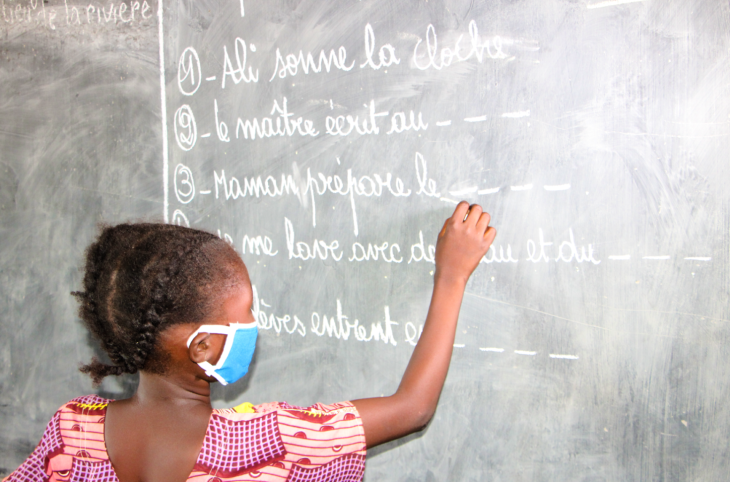 de la rivière
① - Ali sonne la cloche
② - le maître écrit au _ _ _
③ - Maman prépare le _ _ _ _
me lave avec et du _ _ _
entrent _ _ _ _